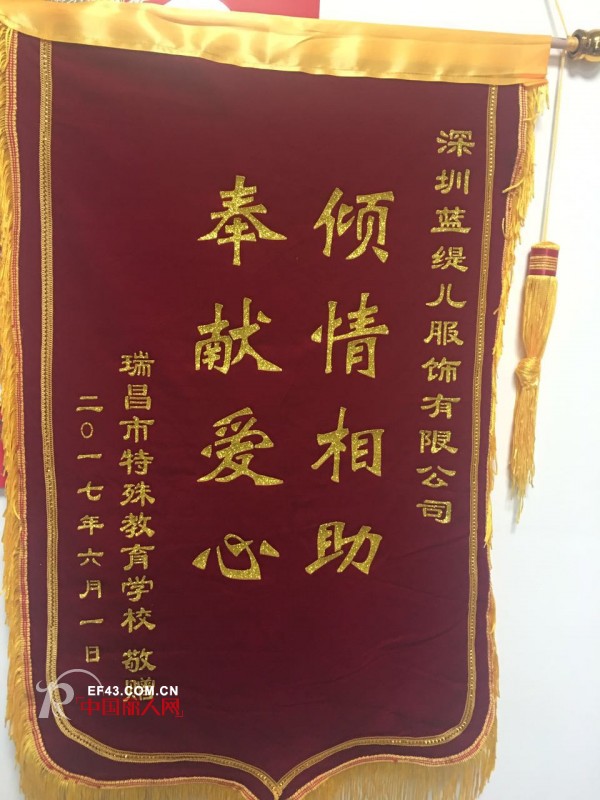 深圳蓝缇儿服饰有限公司
倾情相助
奉献爱心
瑞昌市特殊教育学校 敬赠
二〇一七年六月一日
EF43.COM.CN
中国丽人网